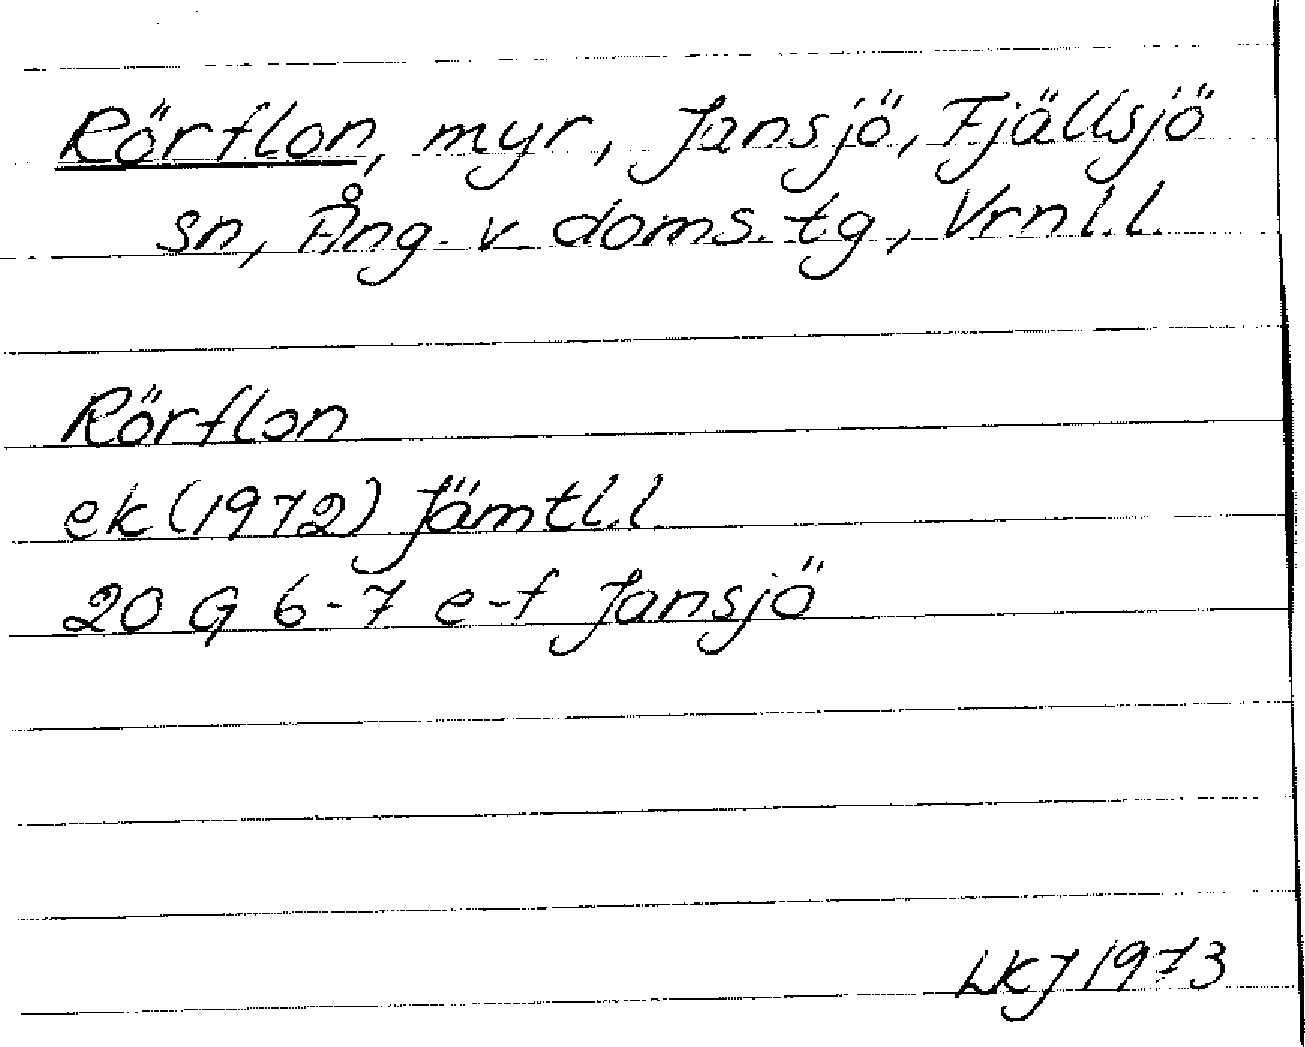 Rörflon, myr, Jansjö, Fjällsjö
sn, Ång. v doms. tg, Vrnl.l.
Rörflon
ek (1972) Jämtl.l
20 G 6-7 e-f Jansjö
LKJ 1973